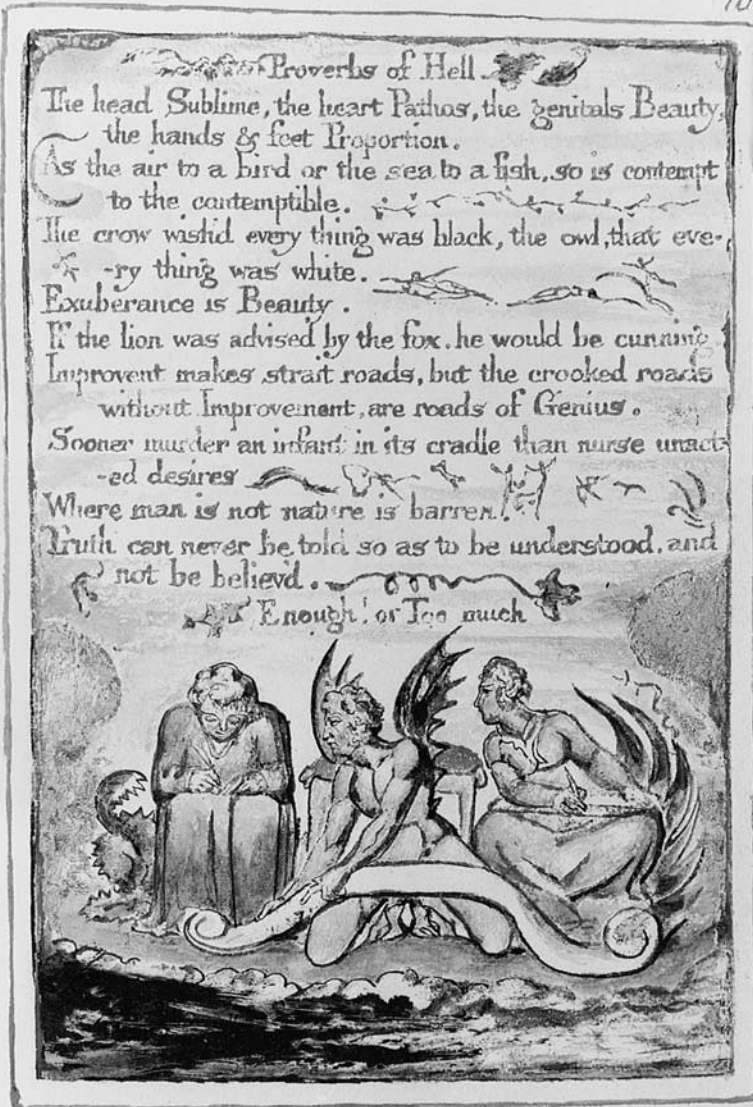 10
Proverbs of Hell.
The head Sublime, the heart Pathos, the genitals Beauty,
the hands & feet Proportion.
As the air to a bird or the sea to a fish, so is contempt
to the contemptible.
The crow wish'd every thing was black, the owl, that eve-
-ry thing was white.
Exuberance is Beauty.
If the lion was advised by the fox. he would be cunning.
Improvent makes strait roads, but the crooked roads
without Improvement, are roads of Genius.
Sooner murder an infant in its cradle than nurse unact-
-ed desires
Where man is not nature is barren.
Truth can never be told so as to be understood. and
not be believ'd.
Enough! or Too much